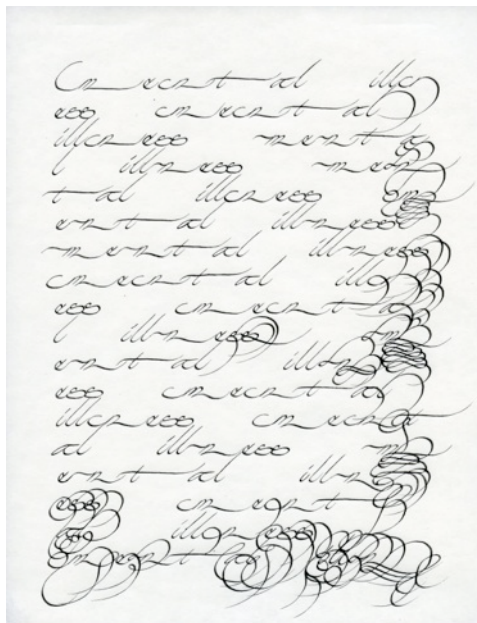 Mental illn
ess mental
illness menta
l illness men
tal illness m
ental illness
mental illness
mental illn
ess menta
l illness m
ental illn
ess mental
illness ment
al illness m
ental illn
ess ment
illness
mental